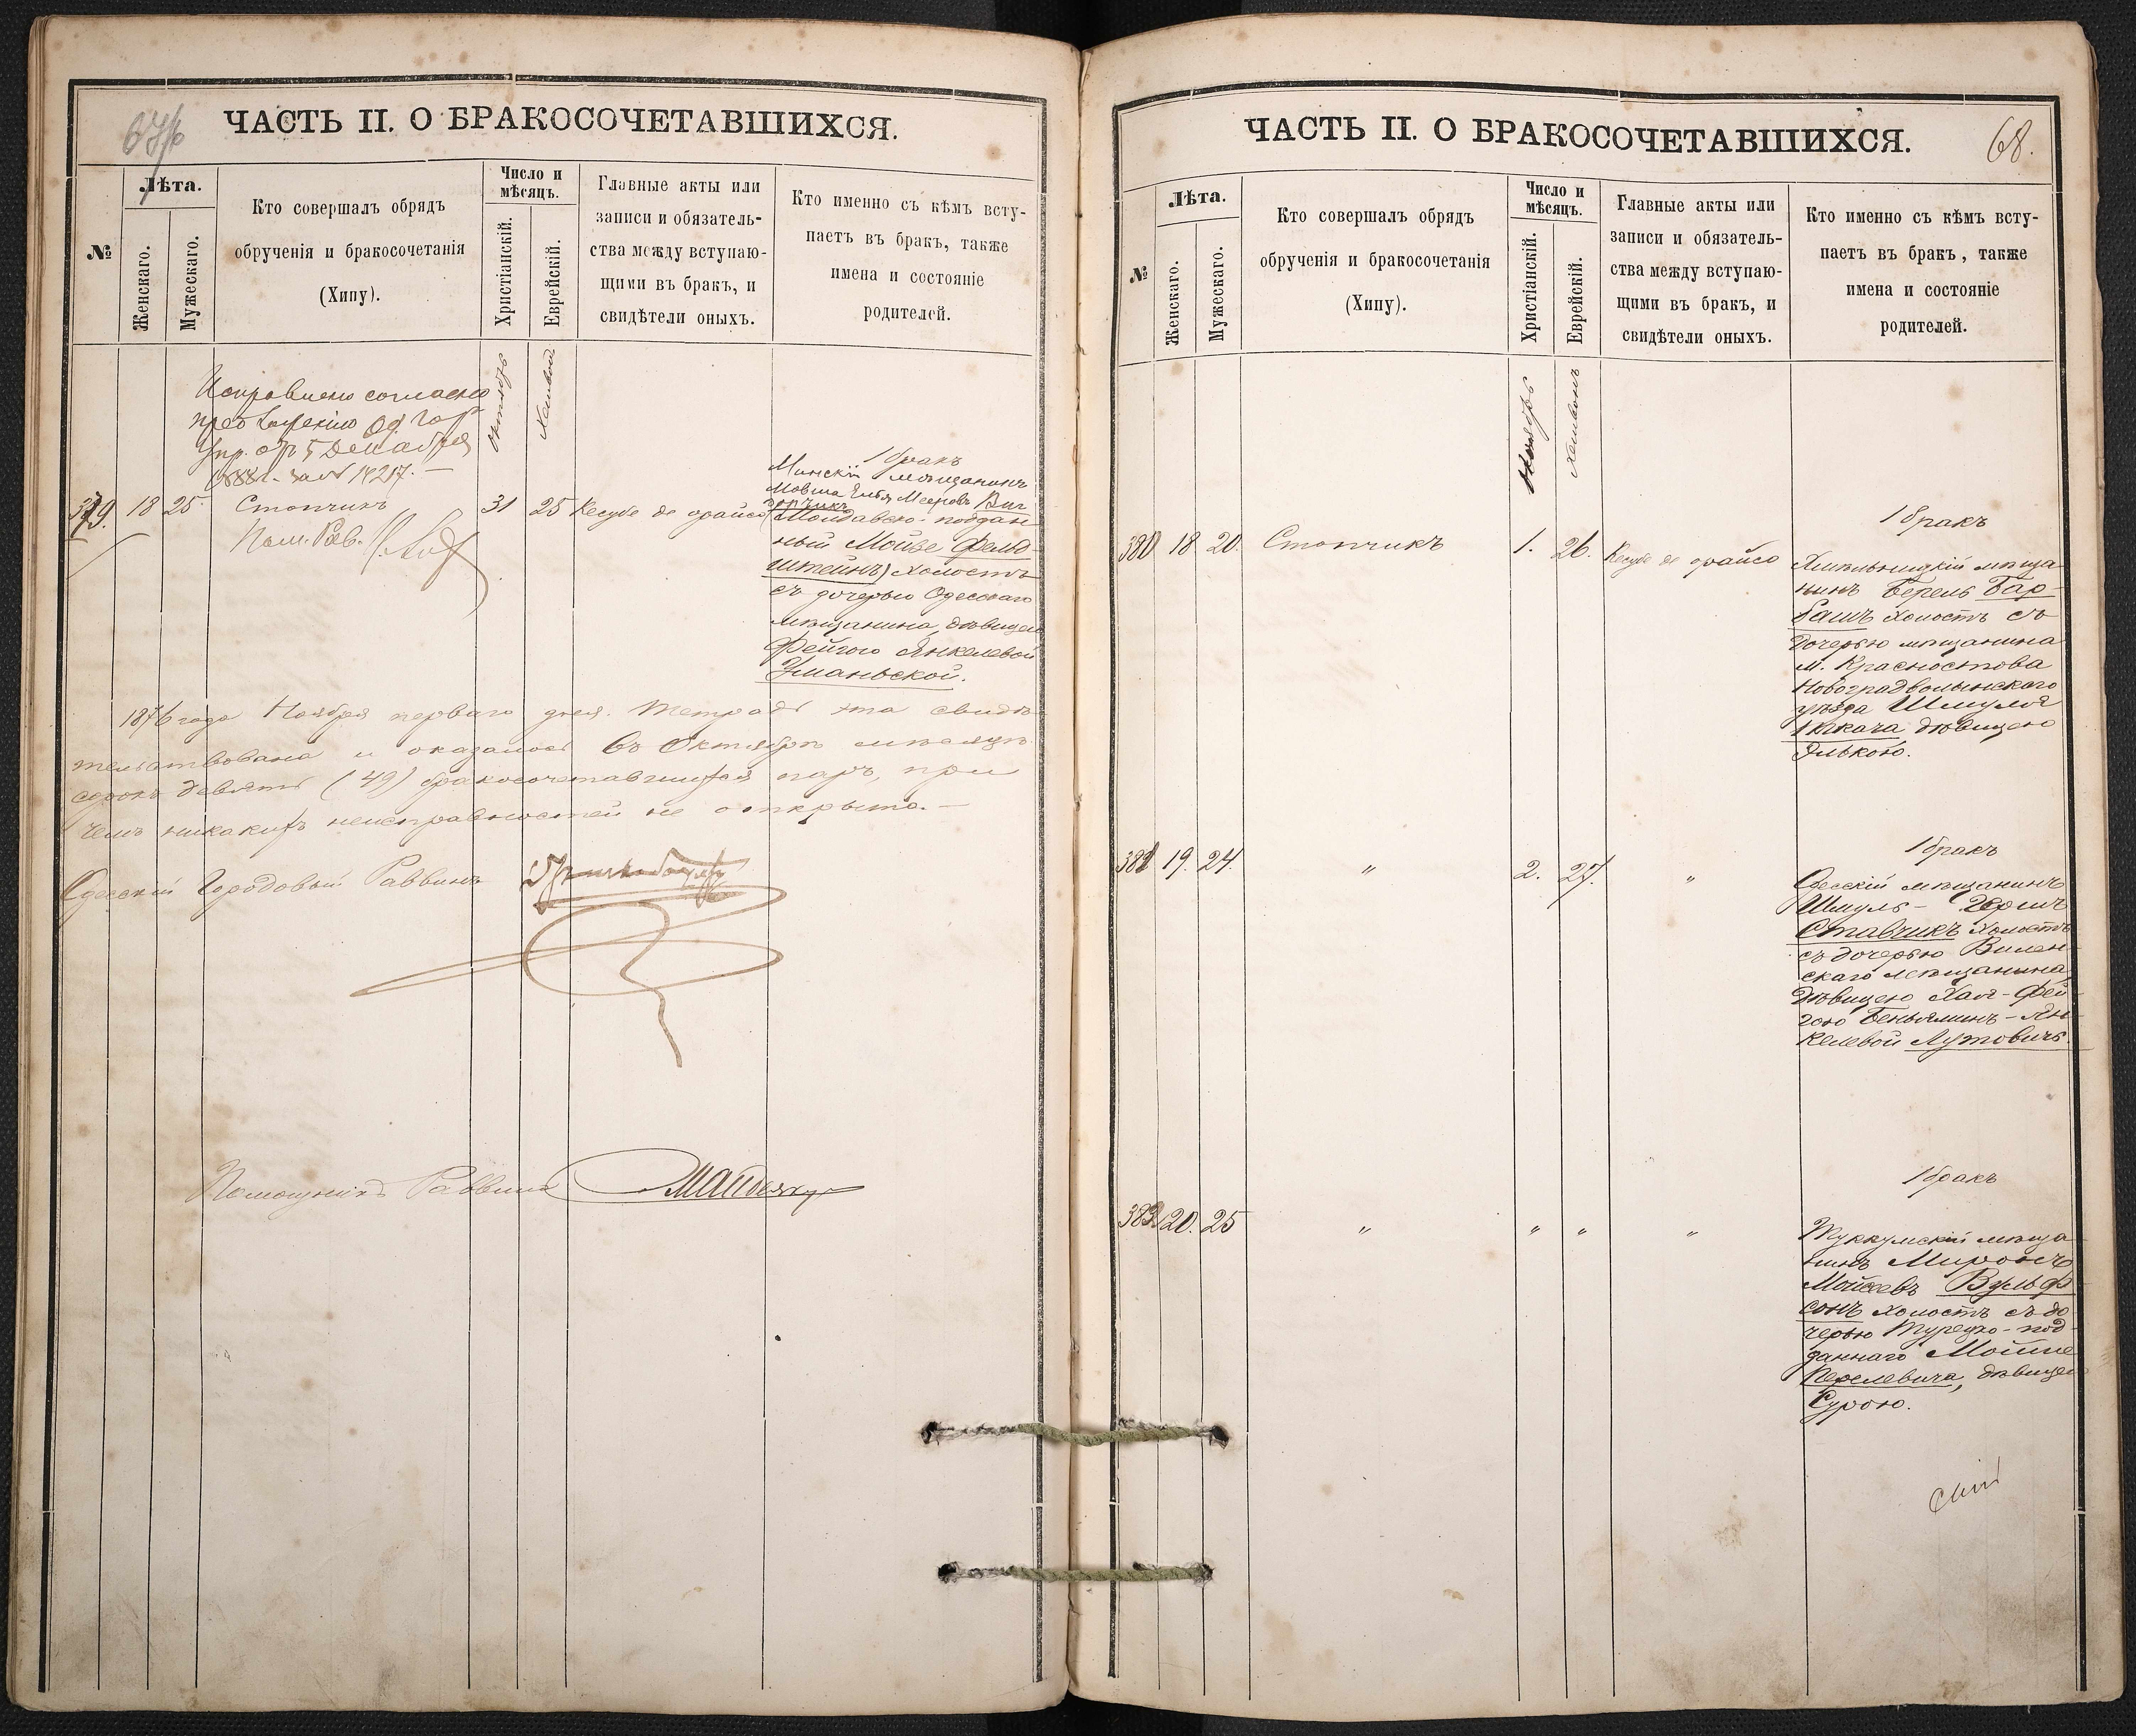 ЧАСТЬ II. О БРАКОСОЧЕТАВШИХСЯ.
№
Лѣта.
Женскаго.
Мужескаго.
Кто совершалъ обрядъ
обрученія и бракосочетанія
(Хипу).
Число и
мѣсяцъ.
Христіанскій.
Еврейскій.
Главные акты или
записи и обязатель-
ства между вступаю-
щими въ бракъ, и
свидѣтели оныхъ.
Кто именно съ кѣмъ всту-
паетъ въ бракъ, также
имена и состояніе
родителей.
Исправлено согласно
предложенію Од. Гор
Упр. отъ 5 Декабря
Октябрь
379. 18 25. Стопчикъ 31 25 Кесубе де орайсо
Пом. Рав.
1 бракъ
Минскій мѣщанинъ
Мовша
Молдавско-поддан-
ный Мойше Фельд-
штейнъ) холостъ
съ дочерью Одесскаго
мѣщанина, дѣвицею
Фейгою Янкелевой
Уманьской.
1876 года Ноября перваго дня. Тетрадь эта свидѣ-
тельствована и оказалось въ Октябрѣ мѣсяцѣ
сорокъ девять (49) бракосочетавшихся паръ, при
чемъ никакихъ неисправностей не открыто.—
Одесскій Городовый Раввинъ
Помощникъ Раввина
ЧАСТЬ II. О БРАКОСОЧЕТАВШИХСЯ.
68.
№
Лѣта.
Женскаго.
Мужескаго.
Кто совершалъ обрядъ
обрученія и бракосочетанія
(Хипу).
Число и
мѣсяцъ.
Христіанскій.
Еврейскій.
Главные акты или
записи и обязатель-
ства между вступаю-
щими въ бракъ, и
свидѣтели оныхъ.
Кто именно съ кѣмъ всту-
паетъ въ бракъ, также
имена и состояніе
родителей.
Ноябрь
Хешвонъ
380 18 20. Стопчикъ 1. 26. Кесубе де орайсо
1 бракъ
Хмѣльницкій мѣща-
нинъ Берель Бар-
башъ холостъ съ
дочерью мѣщанина
м. Красностова
Новоградволынскаго
уѣзда Шмуля
Ткача дѣвицею
Элькою.
381 19. 24. " 2. 27. "
1 бракъ
Одесскій мѣщанинъ
Шмуль- Гершъ
Ставчикъ холостъ
съ дочерью Вилен-
скаго мѣщанина,
дѣвицею Хая-Фей-
гою Беньяминъ-Ян-
келевой Лутовичъ.
382 20. 25 " " " "
1 бракъ
Туккумскій мѣща-
нинъ Миронъ
Мойсеевъ Вульф-
сонъ холостъ съ до-
черью Турецко-под-
даннаго Мойше
Перелевича, дѣвицею
Сурою.